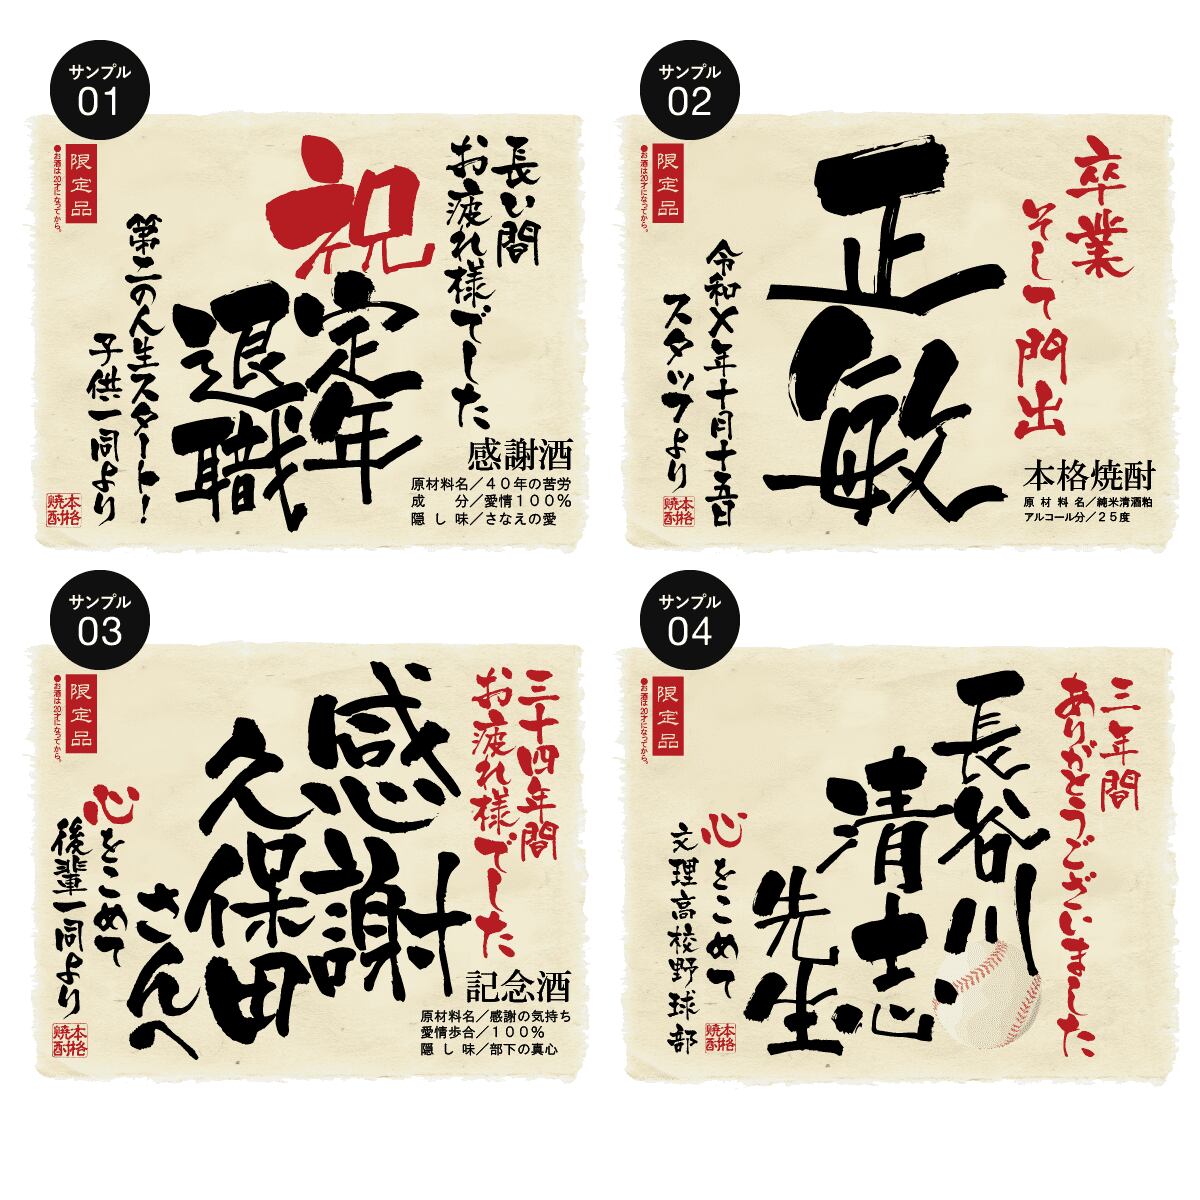 サンプル
01
長い間
お疲れ様でした
祝
定年
退職
第二の人生スタート!
子供一同より
限定品
●お酒は20才になってから。
本格
焼酎
感謝酒
原材料名／４０年の苦労
成　　分／愛情１００％
隠し味／さなえの愛
サンプル
02
卒業
そして門出
正敏
令和X年十月十五日
スタッフより
限定品
●お酒は20才になってから。
本格
焼酎
本格焼酎
原材料名／純米清酒粕
アルコール分／２５度
サンプル
03
三十四年間
お疲れ様でした
感謝
久保田
さんへ
心をこめて
後輩一同より
限定品
●お酒は20才になってから。
本格
焼酎
記念酒
原材料名／感謝の気持ち
愛情歩合／１００％
隠し味／部下の真心
サンプル
04
三年間
ありがとうございました
長谷川
清志
先生
心をこめて
文理高校野球部
限定品
●お酒は20才になってから。
本格
焼酎